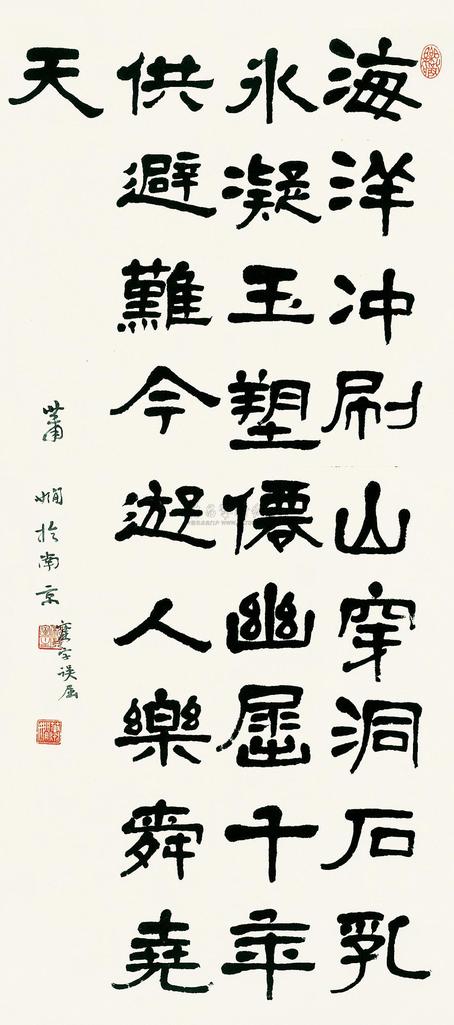 海洋冲刷山穿洞石乳
氷凝玉塑僊幽屈千年
供避難今遊人樂舜堯
天
萧娴於南京
塞字误屈